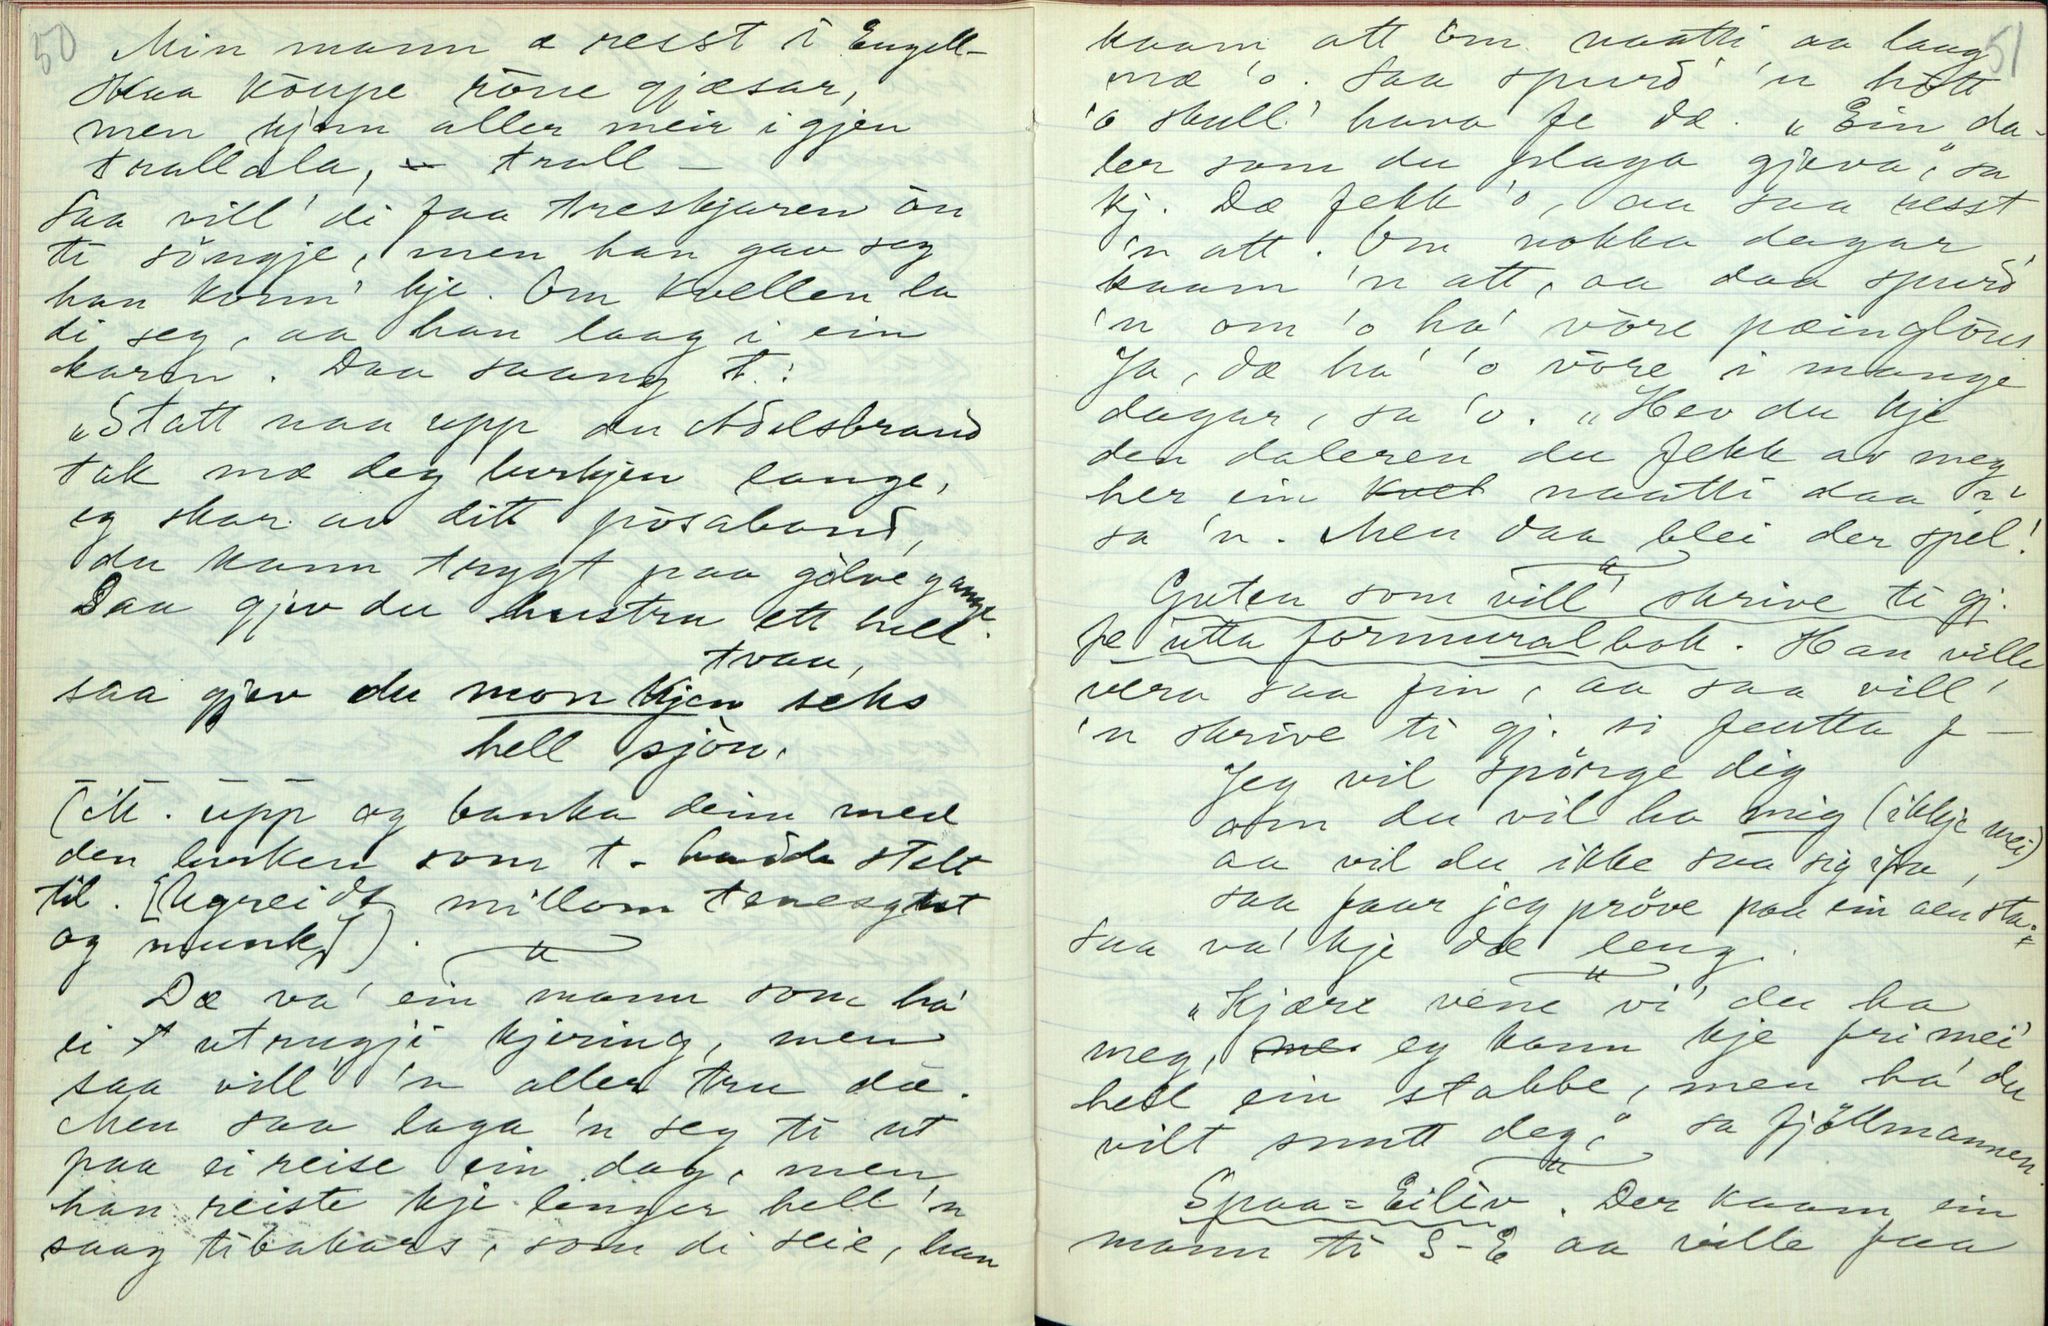 50
Min mann æ resst i Engell-
Skaa köupe röne gjæsar,
men kjem aller meir igjen
trallala, trall -
Saa vill' di faa treskjaren ön
ti söngje, men han gav seg
han konn' kje. Om kvellen la
di seg, aa han laag i ein
karm. Daa saang t.:
"Statt naa upp du Adelsbrand
tak mæ deg lurkjen lange,
eg skar av ditt posaband,
du kann trygt paa gölve gange.
Daa gjev du hustru ett hell
tvaa,
saa gjev du monkjen seks
hell sjöu.
(M. upp og banka deim med
den lurken som t. hadde stelt
til. [Ugreidt millom tenesgut
og munk]).
Dæ va' ein mann som ha'
ei utrugji kjering, men
saa vill' 'n aller tru dæ.
Men saa laga 'n seg ti ut
paa ei reise ein dag, men
han reiste kje lenger hell 'n
saag tibakars, som di seie, han
51
kaam att om naatti aa laag
mæ 'o. Saa spurd' 'n hott
'o skull' hava fe dæ. "Ein da-
ler som du plaga gjeva," sa
kj. Dæ fekk 'o, aa saa resst
'n att. Om nokka dagar
kaam 'n att, aa daa spurd'
'n om 'o ha' vöre pæinglöus
Ja, dæ ha' 'o vöre i mange
dagar, sa 'o. "Hev du kje
den daleren du fekk av meg
her ein naatti daa"
sa 'n. Men daa blei der spel!
Guten som vill' skrive ti gj.
fe utta formuralbok. Han ville
vera saa fin, aa saa vill'
'n skrive ti gj. si feutta f -
Jeg vil spörge dig
om du vil ha mig (ikkje mei)
aa vil du ikke saa sig ifra,
saa faar jeg pröve paa ein aen sta.
Saa va' kje dæ leng.
"Kjære vene vi' du ha
meg, eg kann kje fri mei'
hell ein stabbe, men ha' du
vilt snutt deg," sa fjöllmannen.
Spaa=Eiliv. Der kaam ein
mann ti S-E aa ville faa